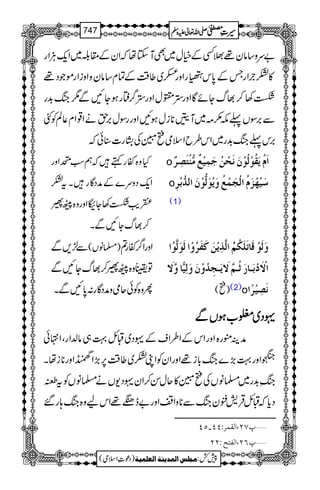 747
سیرتِ مصطفیٰ صلی اللہ تعالیٰ علیہ وسلم
بے سروسامان تھے بھلا کسی کے خیال میں بھی آ سکتا تھا کہ ان کے مقابلہ میں ایک ہزار
کا لشکر جرار جس کے پاس ہتھیار اور عسکری طاقت کے تمام سامان و اوزار موجود تھے
شکست کھا کر بھاگ جائے گا اور ستر مقتول اور ستر گرفتار ہو جائیں گے مگر جنگ بدر
سے برسوں پہلے مکہ مکرمہ میں آیتیں نازل ہوئیں اور رسول برحق نے اقوام عالم کو کئی
برس پہلے جنگ بدر میں اس طرح اسلامی فتح مبین کی بشارت سنائی کہ
اَمْ یَقُوْلُوْنَ نَحْنُ جَمِیْعٌ مُّنْتَصِرٌ o
سَیُهْزَمُ الْجَمْعُ وَ یُوَلُّوْنَ الدُّبُرَ o
(1)
کیا وہ کفار کہتے ہیں کہ ہم سب متحد اور
ایک دوسرے کے مددگار ہیں۔ یہ لشکر
عنقریب شکست کھا جائے گا اور وہ پیٹھ پھیر
کر بھاگ جائیں گے۔
وَ لَوْ قٰتَلَكُمُ الَّذِیْنَ كَفَرُوْا لَوَلَّوُا
الْاَدْبَارَ ثُمَّ لَا یَجِدُوْنَ وَلِیًّا وَّ لَا
نَصِیْرًا o (2) (فتح)
اور اگر کفار تم (مسلمانوں) سے لڑیں گے
تو یقینا وہ پیٹھ پھیر کر بھاگ جائیں گے
پھر وہ کوئی حامی و مددگار نہ پائیں گے۔
یہودی مغلوب ہوں گے
مدینہ منورہ اور اس کے اطراف کے یہودی قبائل بہت ہی مالدار، انتہائی
جنگجو اور بہت بڑے جنگ باز تھے اور ان کو اپنی لشکری طاقت پر بڑا گھمنڈ اور ناز تھا۔
جنگ بدر میں مسلمانوں کی فتح مبین کا حال سن کر ان یہودیوں نے مسلمانوں کو یہ طعنہ
دیا کہ قبائل قریش فنون جنگ سے ناواقف اور بے ڈھنگے تھے اس لیے وہ جنگ ہار گئے
1 ...پ۲۷،القمر:۴۴۔۴۵
2 ...پ۲۶،الفتح:۲۲
پیش کش: مجلس المدينة العلمية (دعوت اسلامی)